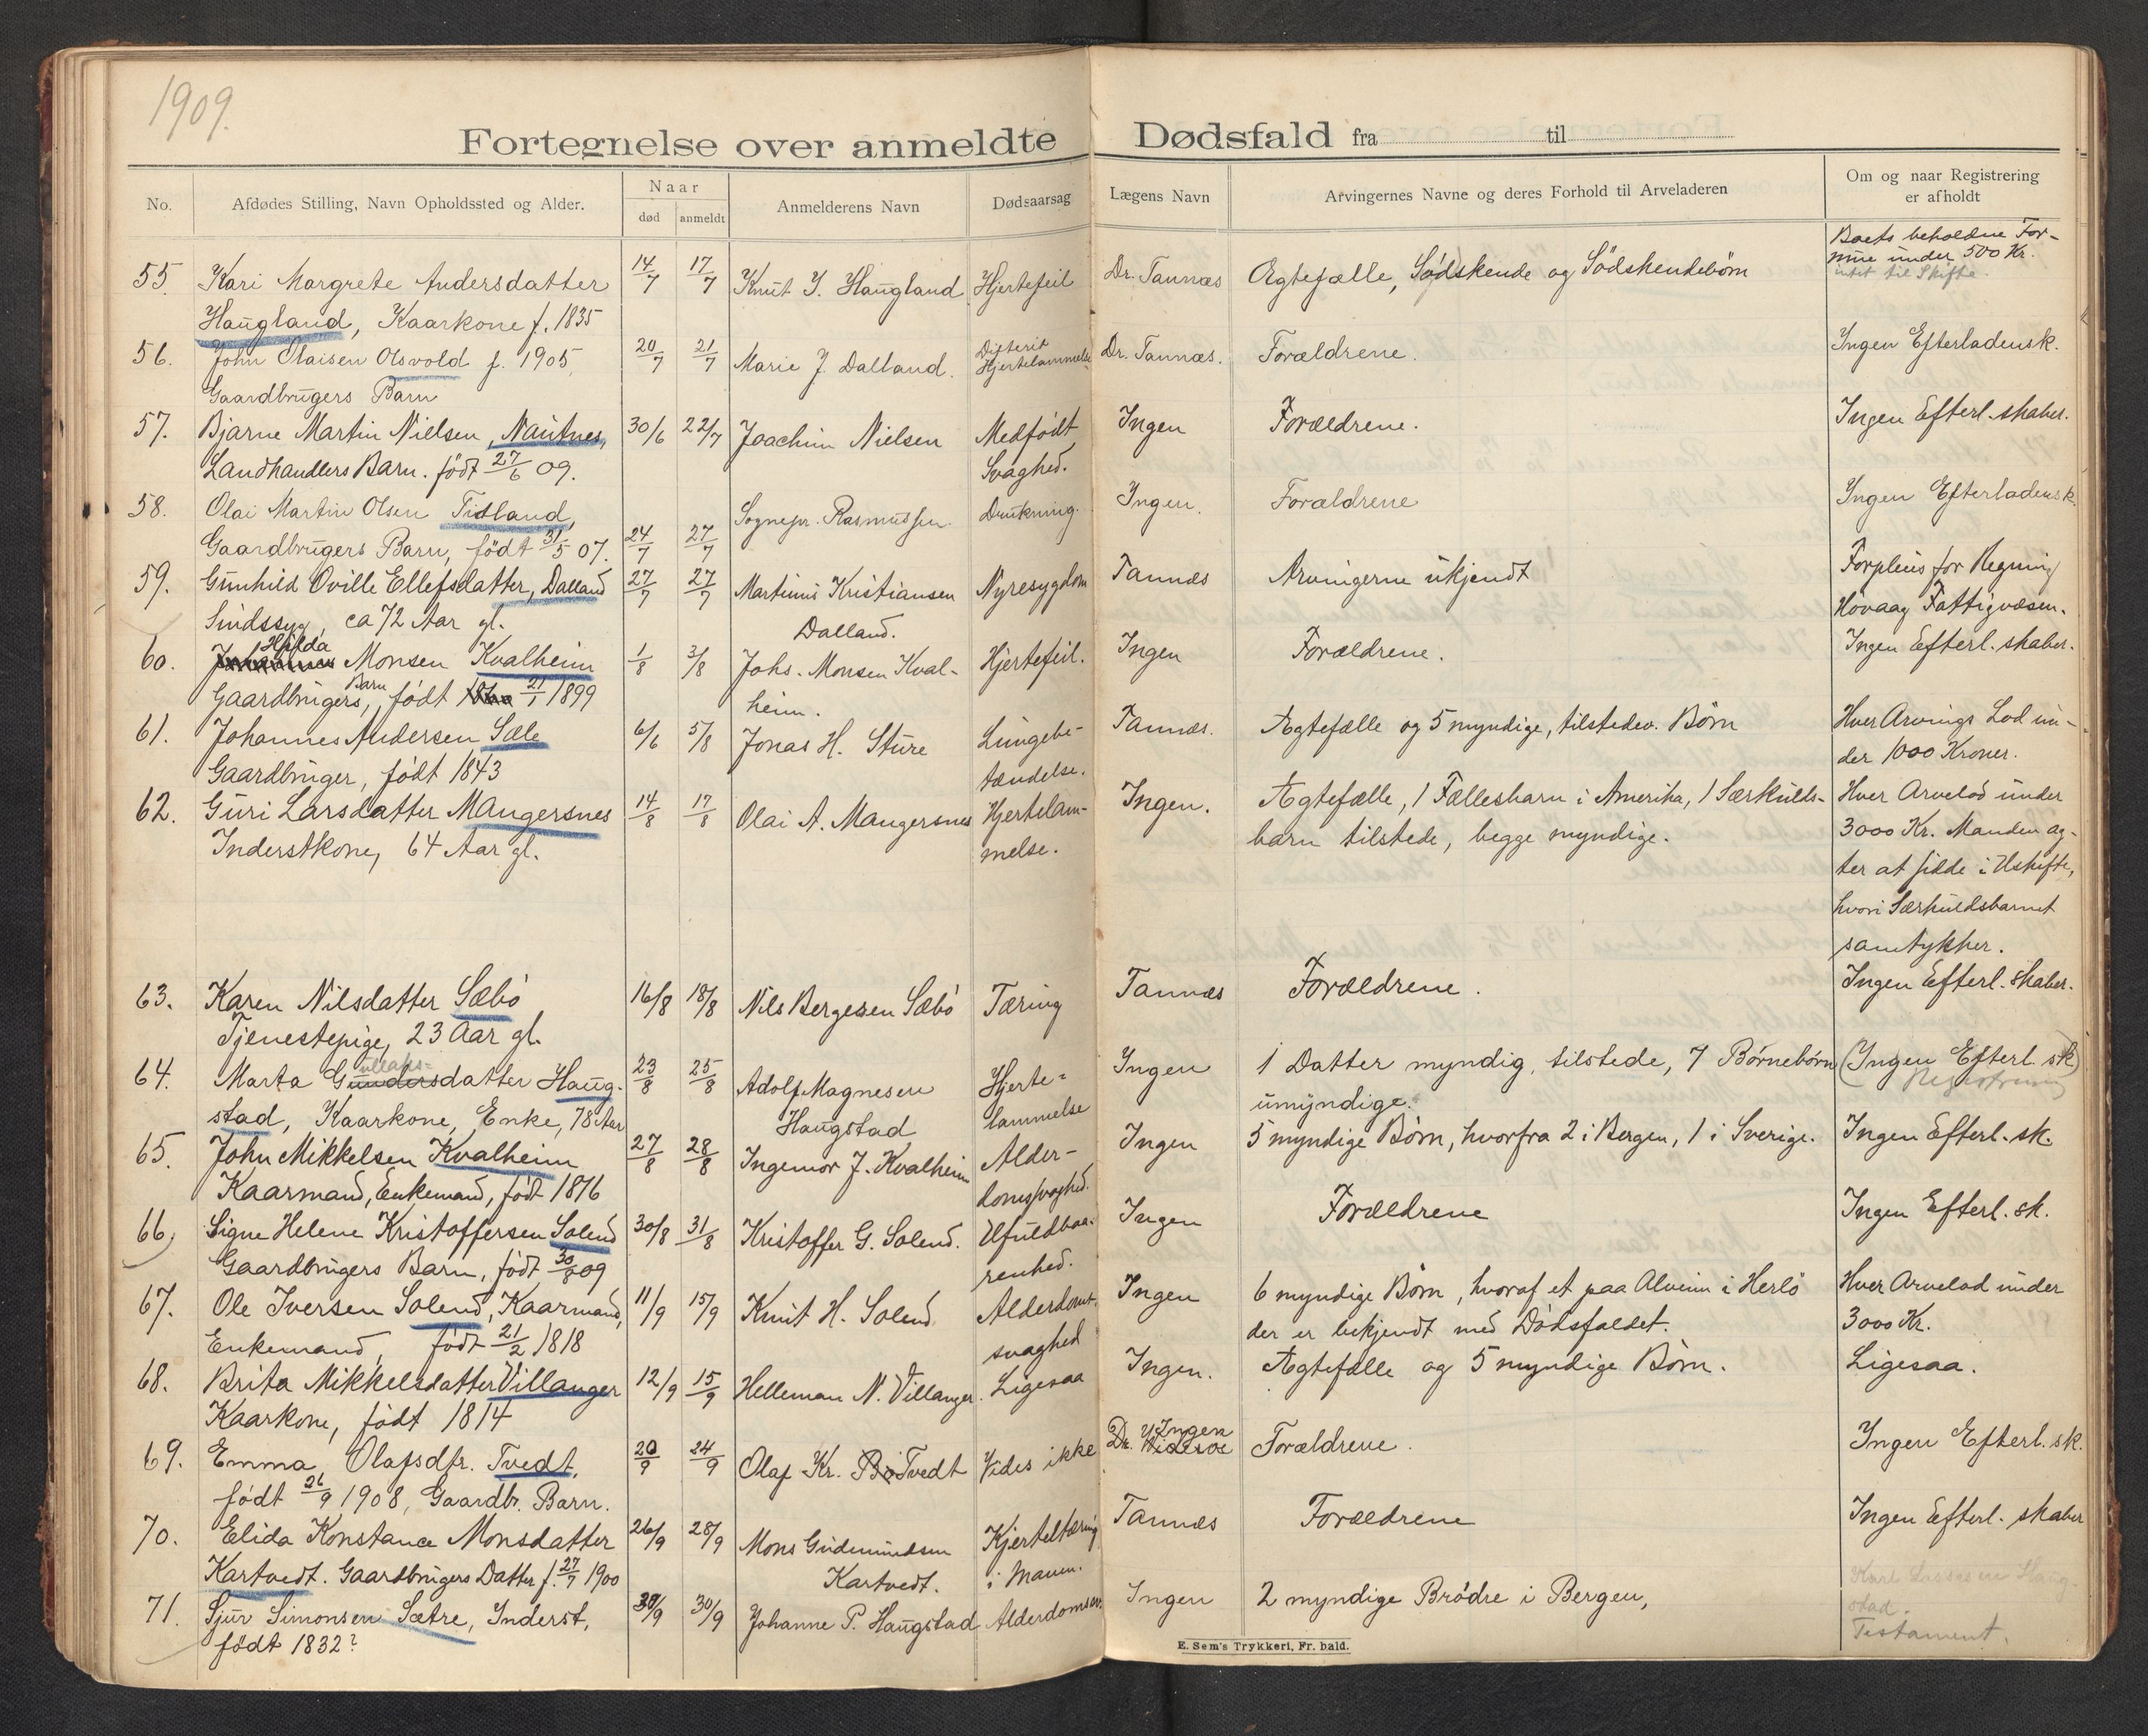 1909.
Fortegnelse over anmeldte Dødsfald fra til
No.
Afdødes Stilling, Navn Opholdssted og Alder.
Naar
død
anmeldt
Anmelderens Navn
Dødsaarsag
Lægens Navn
Arvingernes Navne og deres Forhold til Arveladeren
Om og naar Registrering
er afholdt
55. Kari Margrete Andersdatter 14/7 17/7 Knut J. Haugland Hjertefeil Dr. Tannæs Ægtefælle, Södskende og Södskendebörn Boets beholdne For-
mue under 500 Kr.
intet til Skifte.
Haugland, Kaarkone f. 1835
56. John Olaisen Olsvold f. 1905, 20/7 21/7 Marie J. Dalland. Difterit Dr. Tannæs. Forældrene. Ingen Efterladensk.
Hjertelammelse
Gaardbrugers Barn
57. Bjarne Martin Nielsen, Nautnes, 30/6 22/7 Joachim Nielsen Medfödt Ingen Forældrene. Ingen Efterl.skaber.
Landhandlers Barn. födt 27/6 09. Svaghed.
58. Olai Martin Olsen Tisland, Sognepr. Rasmussen. Drukning. Ingen. Forældrene Ingen Efterladensk.
Gaardbrugers Barn, födt 31/5 07. 24/7 27/7
59. Gunhild Oville Ellefsdatter, Dalland 27/7 27/7 Martinus Kristiansen Nyresygdom Tannæs Arvingerne ukjendt Forpleies for Regning
Sindssyg, ca 72 Aar gl. Dalland. Hövaag Fattigvæsen.
60. Hilda Monsen Kvalheim 1/8 3/8 Johs. Monsen Kval- Hjertefeil. Ingen Forældrene. Ingen Efterl.skaber.
Gaardbrugers Barn, födt 21/1 1899 heim.
61. Johannes Andersen Sæle 6/6 5/8 Jonas H. Sture Lungebe- Tannæs. Ægtefælle og 5 myndige, tilstedev. Börn Hver Arvings Lod un-
Gaardbruger, födt 1843 tændelse. der 1000 Kroner.
62. Guri Larsdatter Mangersnes 14/8 17/8 Olai A. Mangersnes Hjertelam- Ingen. Ægtefælle, 1 Fællesbarn i Amerika, 1 Særkulds- Hver Arvelod under
Inderstkone, 64 Aar gl. melse. barn tilstede, begge myndige. 3000 Kr. Manden ag-
ter at sidde i Uskifte,
hvori Særkuldsbarnet
samtykker.
63. Karen Nilsdatter Sæbö 16/8 18/8 Nils Bergesen Sæbö Tæring Tannæs Forældrene. Ingen Efterl.skaber.
Tjenestepige, 23 Aar gl.
64. Marta Gundersdatter Haug- 23/8 25/8 Adolf Magnesen Hjerte- Ingen 1 Datter myndig, tilstede, 7 Börnebörn (Ingen Efterl.sk)
Registrering
stad, Kaarkone, Enke, 78 Aar Haugstad lammelse umyndige.
65. John Mikkelsen Kvalheim 27/8 28/8 Ingemor J. Kvalheim Alder- Ingen 5 myndige Börn, hvorfra 2 i Bergen, 1 i Sverige. Ingen Efterl.sk.
Kaarmand, Enkemand, födt 1816 domssvaghed.
66. Signe Helene Kristoffersen Solend 30/8 31/8 Kristoffer G. Solend. Ufuldbaa- Ingen Forældrene Ingen Efterl.sk.
Gaardbrugers Barn, födt 30/8 09 renhed.
67. Ole Iversen Solend, Kaarmand, 11/9 15/9 Knut H. Solend. Alderdoms- Ingen 6 myndige Börn, hvoraf et paa Alveim i Herlö Hver Arvelod under
Enkemand, födt 21/2 1818 svaghed der er bekjendt med Dödsfaldet. 3000 Kr.
68. Brita Mikkelsdatter Villanger 12/9 15/9 Helleman N. Villanger. Ligesaa Ingen. Ægtefælle og 5 myndige Börn. Ligesaa.
Kaarkone, födt 1814
69. Emma Olafsdtr. Tvedt, 20/9 24/9 Olaf Kr. Tvedt Vides ikke Ingen Forældrene. Ingen Efterl.sk.
födt 26/9 1908, Gaardbr. Barn.
70. Elida Konstance Monsdatter 26/9 28/9 Mons Gudmundsen Kjerteltæring Tannæs Forældrene Ingen Efterl.skaber
Kartvedt. Gaardbrugers Datter f. 27/7 1900 Kartvedt. i Maven.
71. Sjur Simonsen Sætre, Inderst, 30/9 30/9 Johanne P. Haugstad Alderdomssv. Ingen 2 myndige Brödre i Bergen, Haug-
stad.
Testament.
födt 1832?
E. Sem's Trykkeri, Fr.hald.